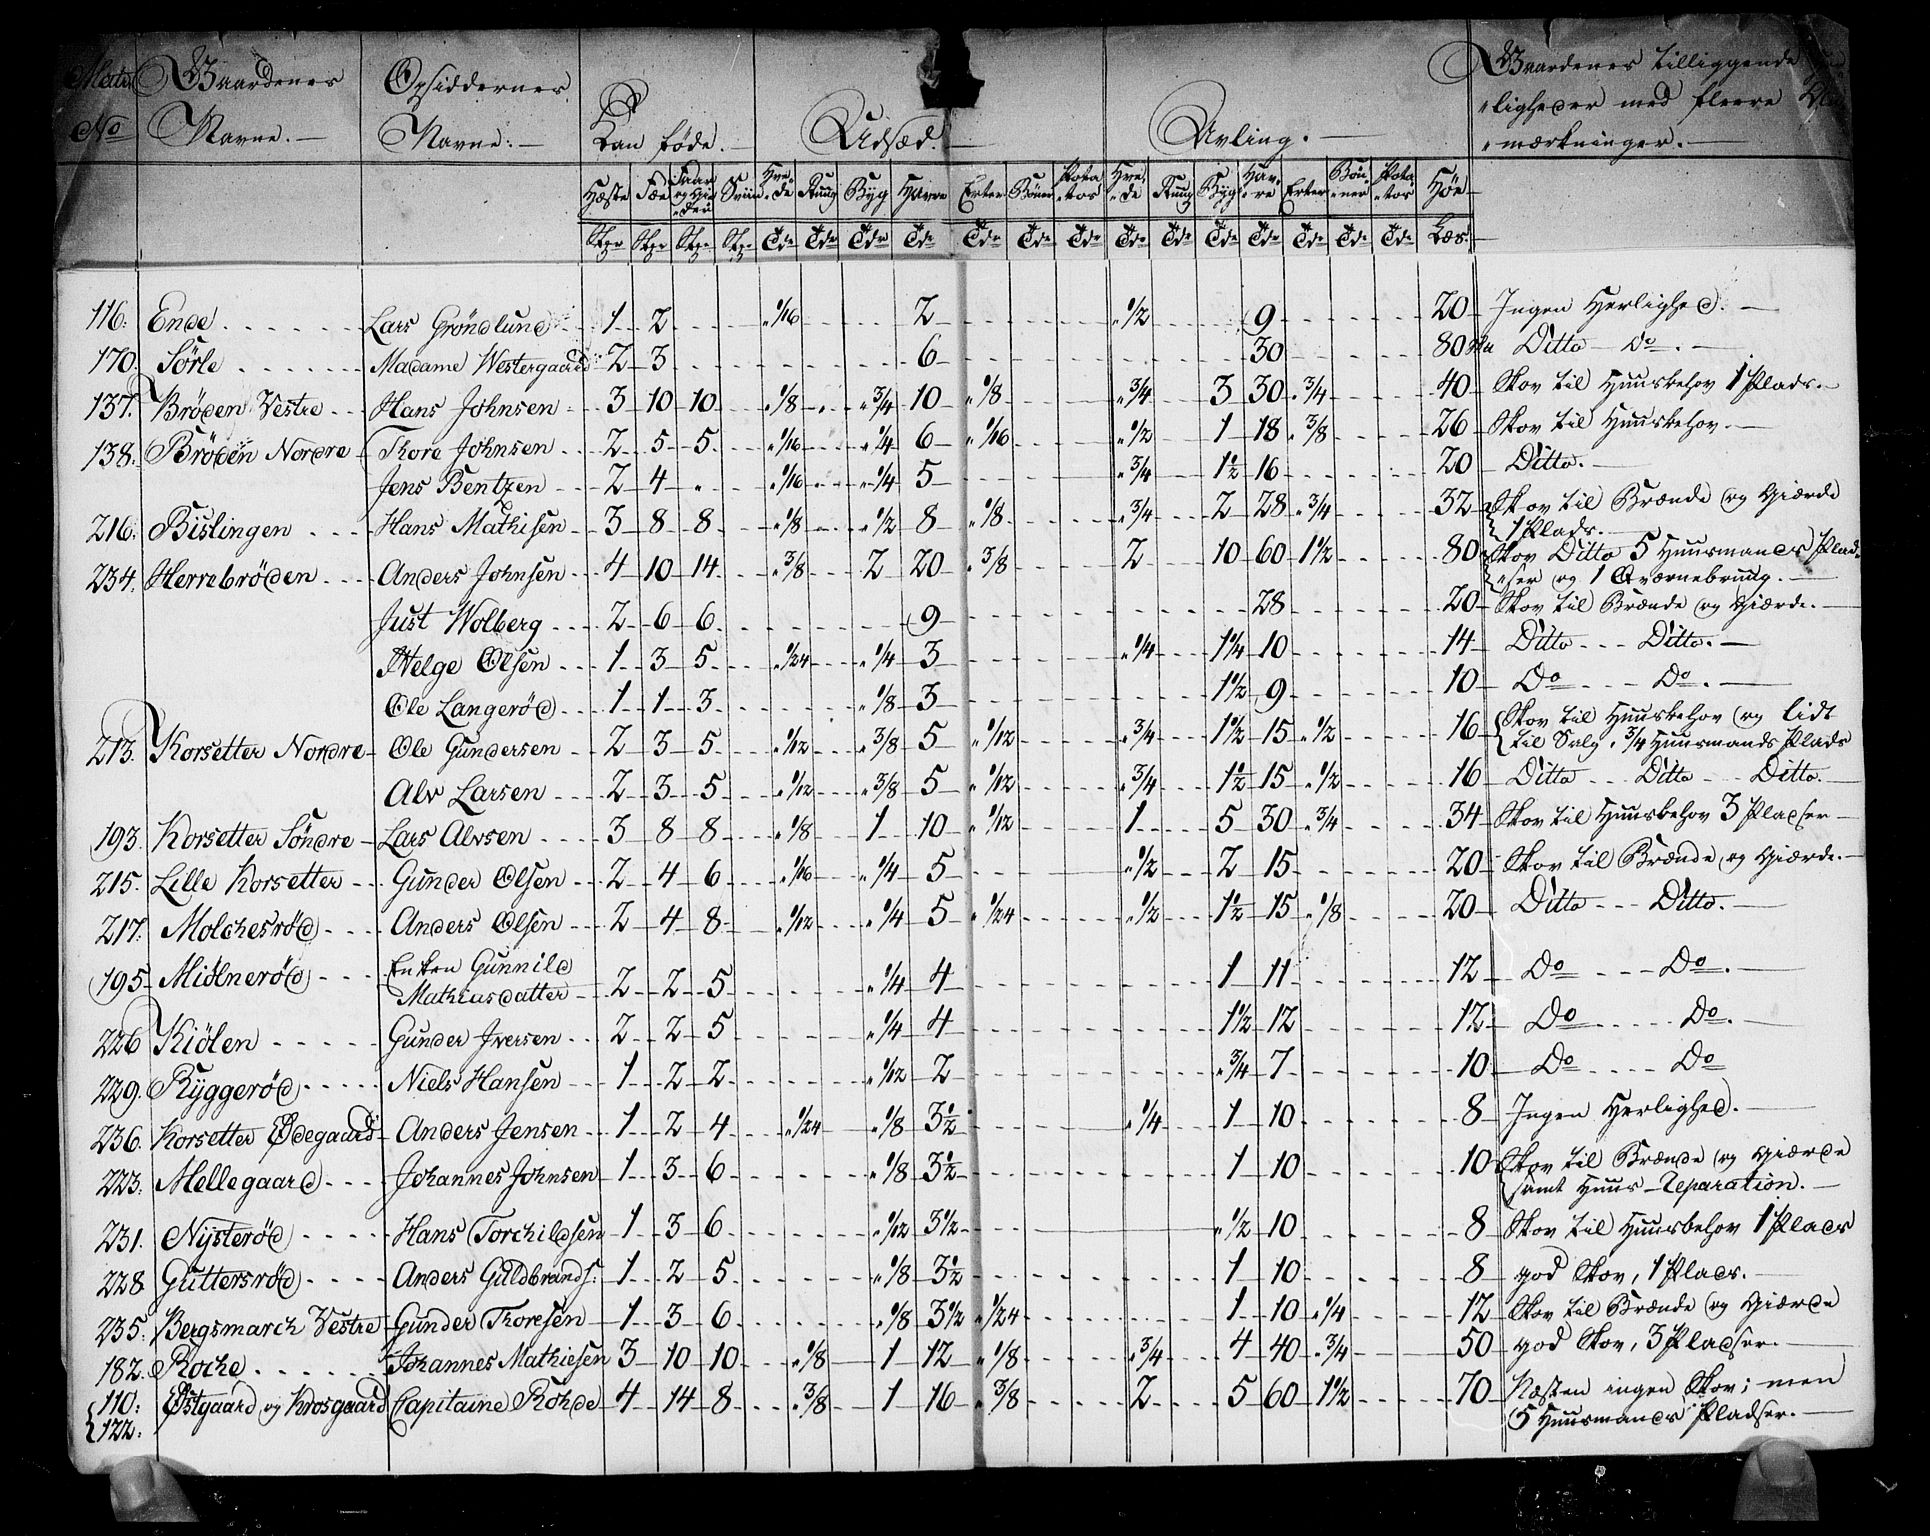 Matr Gaardenes Opsiddernes Gaardenes tilliggende
No Navne. Navne. Kan föde. Udsæd. Avling. ligheder med fleere
mærkninger.
Hæste Fæe Faar og Gie den Sviin Hve de Ruug Byg Havre Erter Bönner Pota tos Hve de Ruug Byg Hav re Erter Bön ner Pota tos Höe
Tde Tde Tde Tde Tde Tde Tde Tde Tde Tde Tde Tde Tde Tde Læs.
116. Ende Lars Gröndlund 1 2 " 1/16 2 " 1/2 9 20 Ingen Herlighed.
170. Sörle Madame Westergaard 2 3 6 30 80 Ditto Do.
137. Bröden Vestre Hans Johnsen 3 10 10 " 1/8 " 3/4 10 " 1/8 " 3/4 3 30 " 3/4 40 Skov til Huuskehov 1 Plads.
138. Bröden Nordre Thore Johnsen 2 5 5 " 1/16 " 1/4 6 " 1/16 " 1/2 1 18 " 3/8 26 Skov til Huuskehov.
Jens Bentzen 2 4 " " 1/16 " 1/4 5 " 3/4 1 1/2 16 20 Ditto.
216. Bislingen Hans Mathisen 3 8 8 " 1/8 " 1/2 8 " 1/8 " 3/4 2 28 " 3/4 32 Skov til Brænde og Giærde
1 Plads.
234. Herrebröden Anders Johnsen 4 10 14 " 3/8 2 20 " 3/8 2 10 60 1 1/2 80 Skov Ditto 5 Huusmands Plad
ser og 1 Qværnebruug.
Just Wolberg 2 6 6 9 28 20 Skov til Brænde og Giærde.
Helge Olsen 1 3 5 " 1/24 " 1/4 3 " 1/4 1 1/4 10 14 Ditto Ditto.
Ole Langeröd 1 1 3 " 1/8 3 1 1/2 9 10 Do Do.
213. Korsetter Nordre Ole Gundersen 2 3 5 " 1/12 " 3/8 5 " 1/12 " 3/4 1 1/2 15 " 1/2 16 Skov til Huuskehov og lidt
til Salg. 3/4 Huusmands Plads
Alv Larsen 2 3 5 " 1/12 " 3/8 5 " 1/12 " 3/4 1 1/2 15 " 1/2 16 Ditto Ditto Ditto.
193. Korsetter Söndre Lars Alvsen 3 8 8 " 1/8 1 10 " 1/12 1 5 30 " 3/4 34 Skov til Huuskehov 3 Pladser
215. Lille Korsetter Gunder Olsen 2 4 6 " 1/16 " 1/4 5 " 1/2 2 15 20 Skov til Brænde og Giærde.
217. Molchesröd Anders Olsen 2 4 8 " 1/12 " 1/4 5 " 1/24 " 1/2 1 1/2 15 " 1/8 20 Ditto Ditto.
195 Miölneröd Enken Gunnild
Mathiasdatter 2 2 5 " 1/4 4 1 11 12 Do Do.
226 Kiölen Gunder Iversen 2 2 5 " 1/4 4 1 1/2 12 12 Do Do.
229. Ryggeröd Niels Hansen 1 2 2 " 1/12 2 " 3/4 7 10 Do Do
236. Korsetter Ødegaard Anders Jensen 1 2 4 " 1/24 " 1/8 3 1/2 " 1/4 1 10 8 Ingen Herlighed.
223. Mellegaard Johannes Johnsen 1 3 6 " 1/8 3 1/2 1 10 10 Skov til Brænde og Giærde
samt Huus-Reparation.
231. Nysteröd Hans Torchildsen 1 3 6 " 1/12 3 1/2 " 1/2 10 8 Skov til Huusbehov 1 Plads
228 Guttersröd Anders Guldbrands: 1 2 5 " 1/8 3 1/2 1 10 8 god Skov, 1 Plads.
235. Bergsmarch Vestre Gunder Thoresen 1 3 6 " 1/8 3 1/2 " 1/24 1 10 " 1/4 12 Skov til Brænde og Giærde
182. Roche Johannes Mathiesen 3 10 10 " 1/8 1 12 " 1/8 " 3/4 4 40 " 3/4 50 god Skov, 3 Pladser.
110: Østgaard og Krosgaard Capitaine Rohde 4 14 8 " 3/8 1 16 " 3/8 2 5 60 1 1/2 70 Næsten ingen Skov; men
122: 5 Huusmands Pladser.